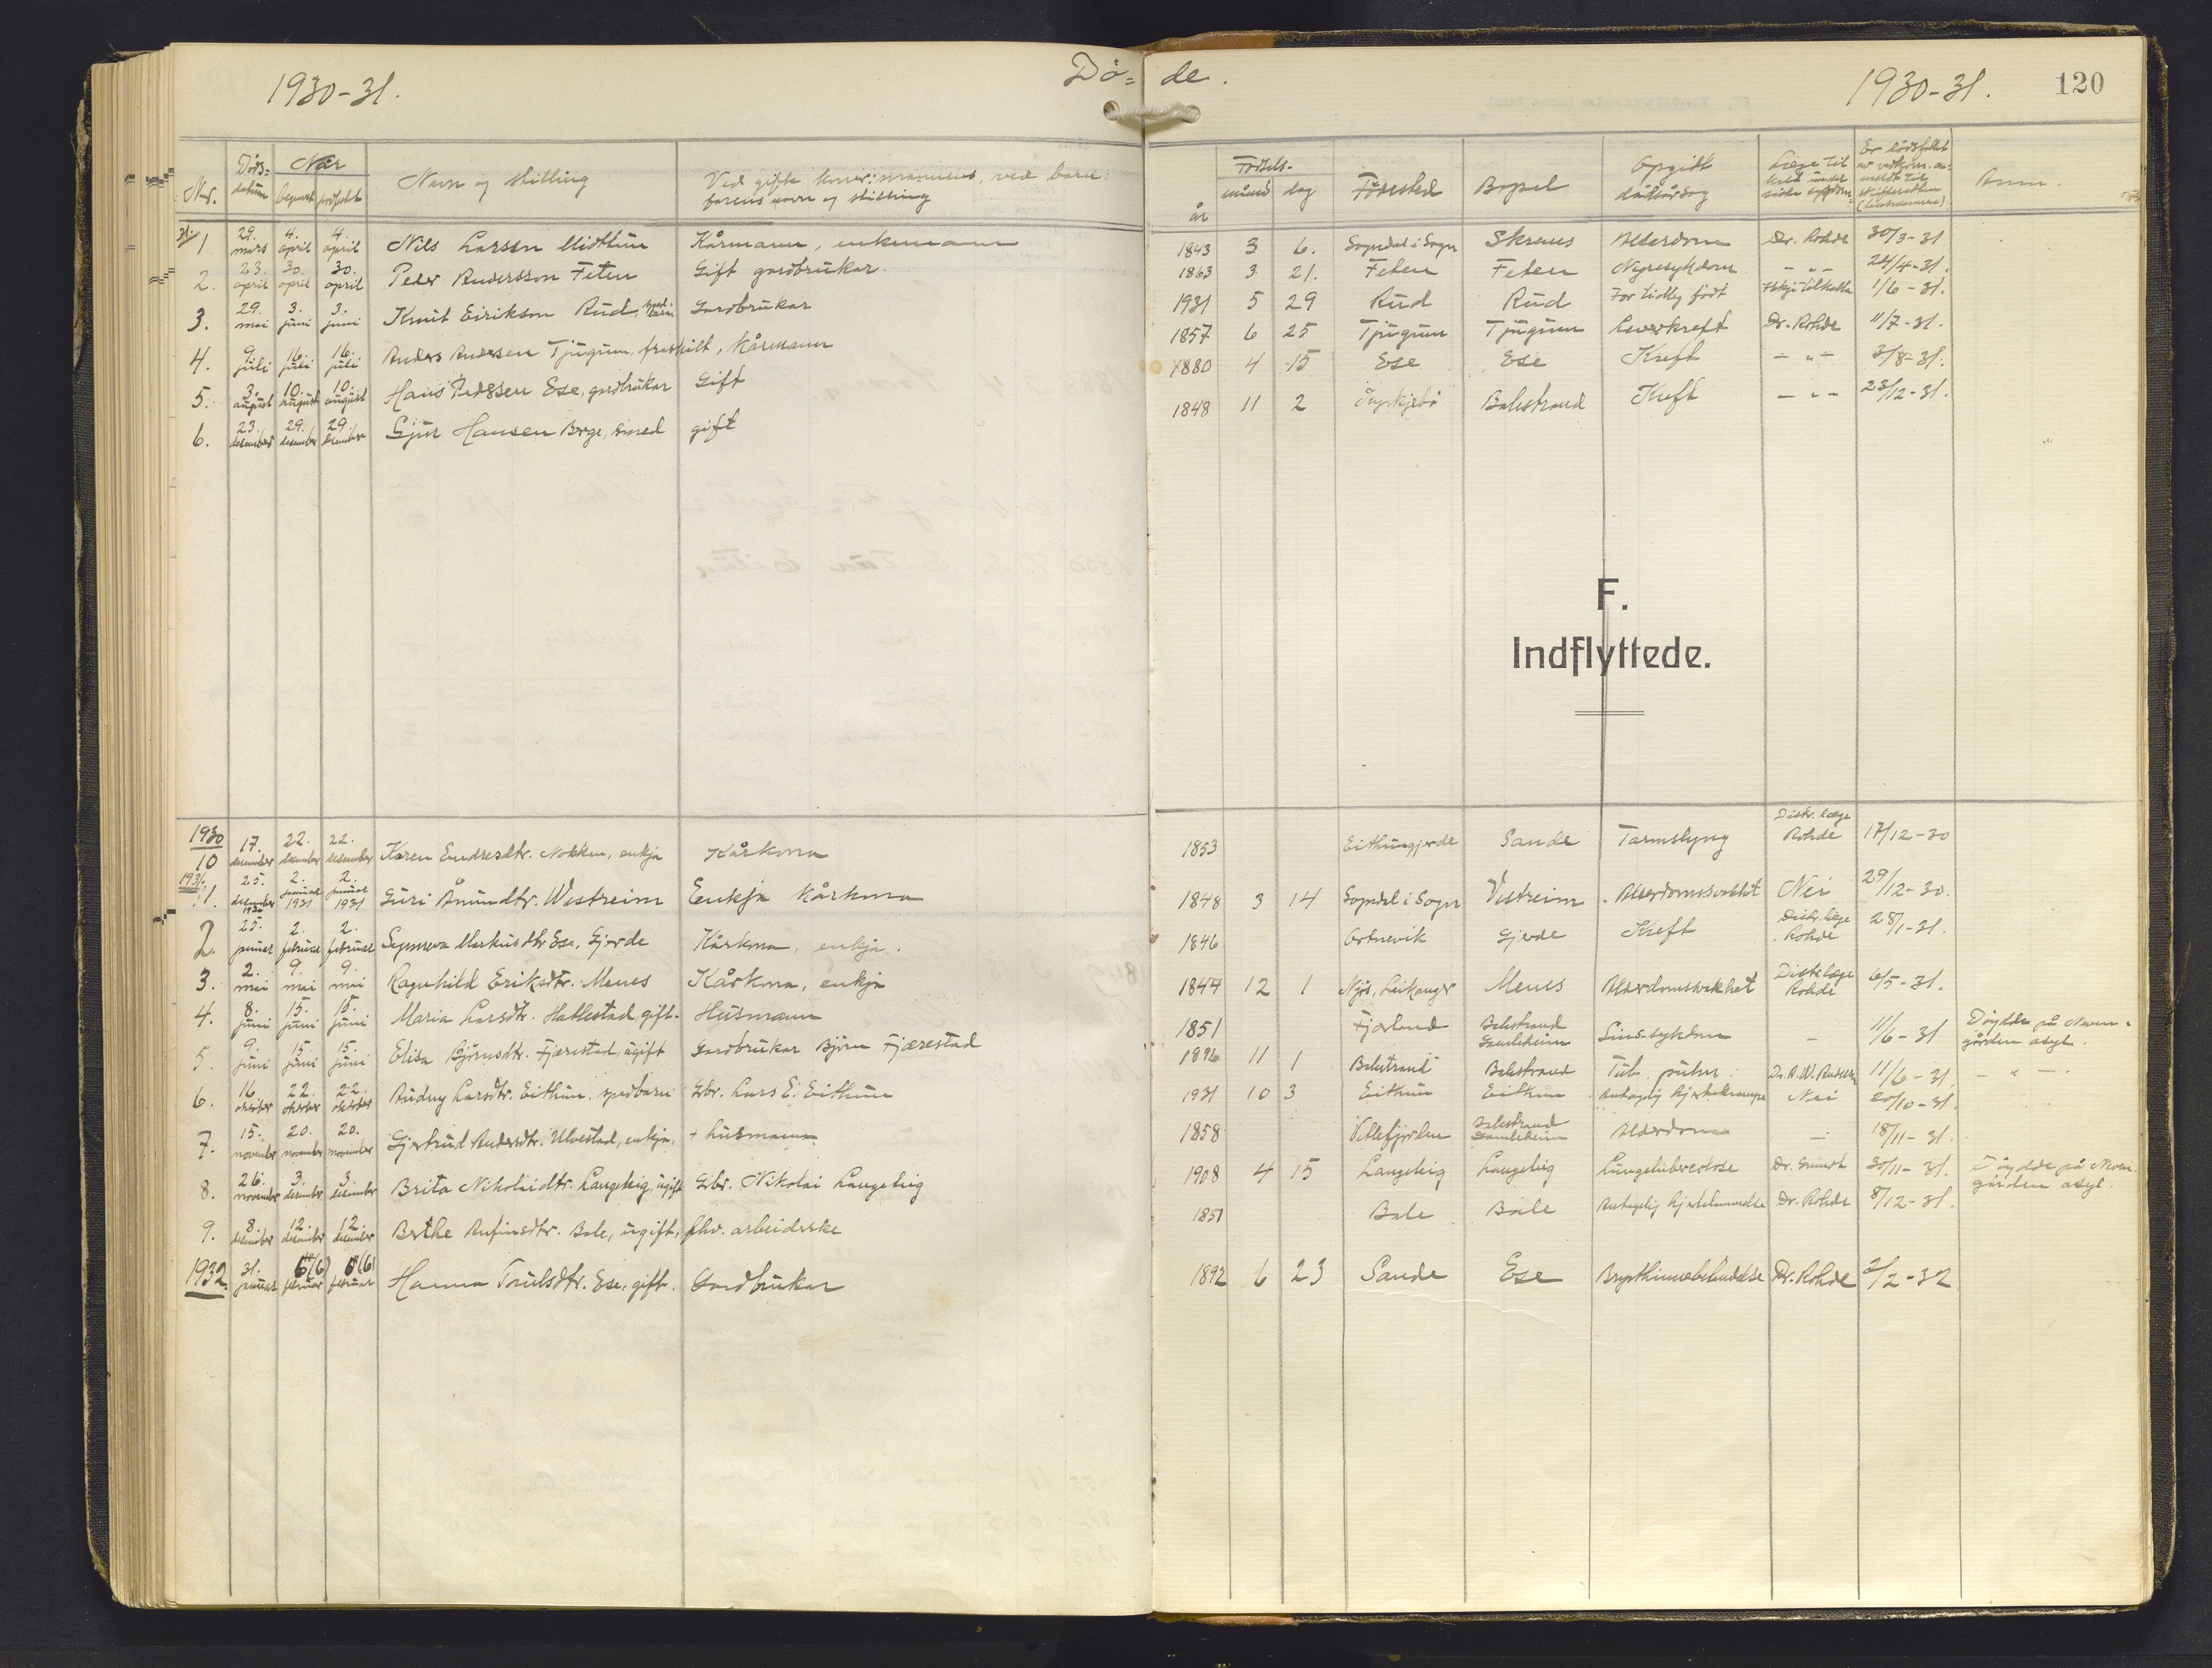 1930-31.
Dø= de.
1930-31. 120
Nr. Døds=datum Når begravet jordfestet Navn og stilling Ved gifte koner: mannens, ved barn: farens navn og stilling
Fødsels- år måned dag Fødested Bopel Opgitt dødsårsag Læge til Anm.
31 1 29. mars 4. april 4. april Nils Larsen Midthun Kårmann, enkemann 1843 3 6. Sogndal i Sogn Alderdom Dr. Rohde 30/3-31
2. 23. april 30. april 30. april Peder Andersson Feten Gift gardbrukar. 1863 3 21. Feten Feten Nyresykdom - " - 24/4-31.
3. 29. mai 3. juni 3. juni Knut Eirikson Rud, spedbarn Gardbrukar 1931 5 29 Rud Rud For tidleg født Ikkje tilkalla 1/6-31.
4. 9. juli 16. juli 16. juli Anders Andersen Tjugum, fraskilt, Kårmann 1857 6 25 Tjugum Tjugum Leverkreft Dr. Rohde 11/7-31.
5. 3. august 10. august 10. august Hans Pedersen Ese, gardbrukar Gift 1880 4 15 Ese Ese Kreft - " - 3/8-31.
6. 23. desember 29. desember 29. desember Gjur Hansen Berge, smed gift 1848 11 2 Balestrand Kreft - " - 23/12-31.
F.
Indflyttede.
1930
10 17. desember 22. desember 22. desember Karen Endresdtr. Nokken, enkja Kårkona 1853 Eithungjerde Sande Tarmslyng Distr. læge Rohde 17/12-30
1931. 1. 25. desember 1930 2. januar 1931 2. januar 1931 Guri Åmundtr. Vestreim Enkja Kårkona 1848 3 14 Sogndal i Sogn Vestreim Alderdomssvakhet Nei 29/12-30.
2. 25. januar 2. februar 2. februar Synneva Markusdtr Ese, Gjerde Kårkona, enkja. 1846 Ortnevik Gjerde Kreft Distr. læge Rohde 28/1-31.
3. 2. mai 9. mai 9. mai Ragnhild Eriksdtr. Menes Kårkona, enkja 1844 12 1 Njøs, Leikanger Menes Alderdomssvakhet Distr. læge Rohde 6/5-31.
4. 8. juni 15. juni 15. juni Maria Larsdtr. Hatlestad, gift. Husmann 1851 Fjærland Balestrand Gamleheim Sinssykdom - 11/6-31 Døydde på Neven-gården asyl.
5. 9. juni 15. juni 15. juni Elisa Bjørnsdtr. Fjærestad, ugift Gardbrukar Bjørn Fjærestad 1896 11 1 Balestrand Balestrand Tub. pulm. 11/6-31 - " -
6. 16 oktober 22. oktober 22. oktober Audny Larsdtr. Eithun, spedbarn Gbr. Lars E. Eithun 1931 10 3 Eithun Eithun Antagelig hjertekrampe Nei 20/10-31.
7. 15. november 20. november 20. november Gjertrud Andersdtr. Ulvestad, enkja, + husmann. 1858 Vetlefjorden Balestrand Gamleheim Alderdom - 18/11-31.
8. 26. november 3. desember 3. desember Brita Nikolaidtr. Langeteig, ugift Gbr. Nikolai Langeteig 1908 4 15 Langeteig Langeteig Lungetuberculose 30/11-31. Døydde på Neven-gården asyl.
9. 8. desember 12. desember 12. desember Berthe Anfinsdtr. Bale, ugift, fhv. arbeiderske 1851 Bale Bale Dr. Rohde 8/12-31.
1932 31. januar 6 (6) februar 6 (6) februar Hanna Trulsdtr. Ese, gift. Gardbrukar 1892 6 23 Sande Ese Brysthinnebetendelse Dr. Rohde 2/2-32